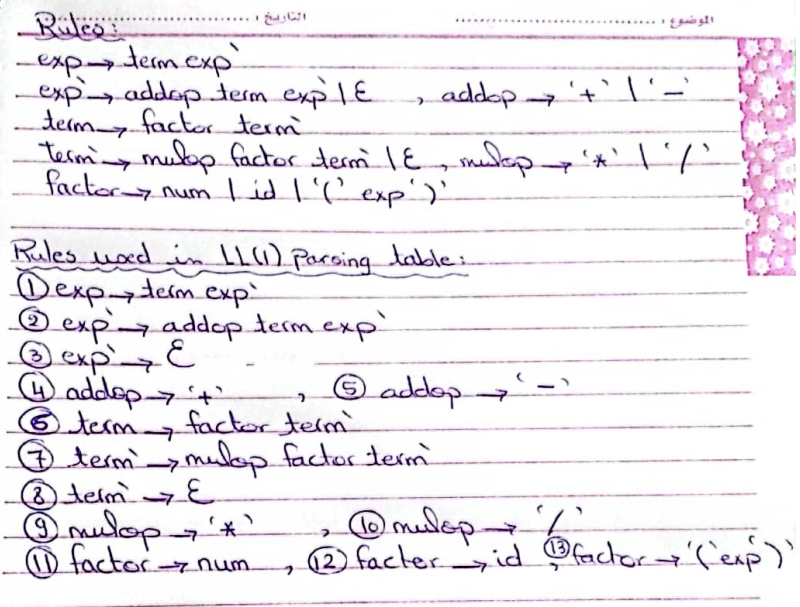 الموضوع : ........................ التاريخ : ........................
Rules:
exp → term exp`
exp` → addop term exp` | ε , addop → '+' | '-'
term → factor term`
term` → mulop factor term` | ε , mulop → '*' | '/'
factor → num | id | '(' exp ')'
Rules used in LL(1) Parsing table:
① exp → term exp`
② exp` → addop term exp`
③ exp` → ε
④ addop → '+' , ⑤ addop → '-'
⑥ term → factor term`
⑦ term` → mulop factor term`
⑧ term` → ε
⑨ mulop → '*' , ⑩ mulop → '/'
⑪ factor → num , ⑫ factor → id , ⑬ factor → '(' exp ')'